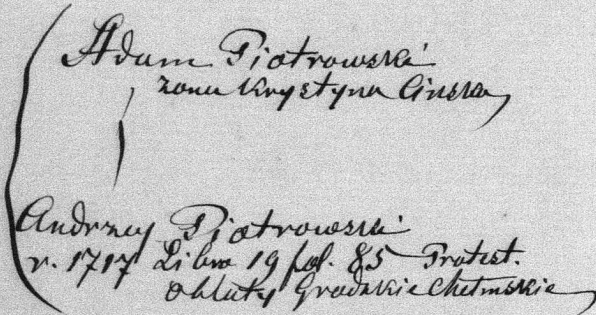 Adam Piotrowski
żona Krystyna Cinska
Andrzey Piotrowski
r. 1717 Libro 19 fol. 85 Protest.
oblaty Grodzkie Chełmskie